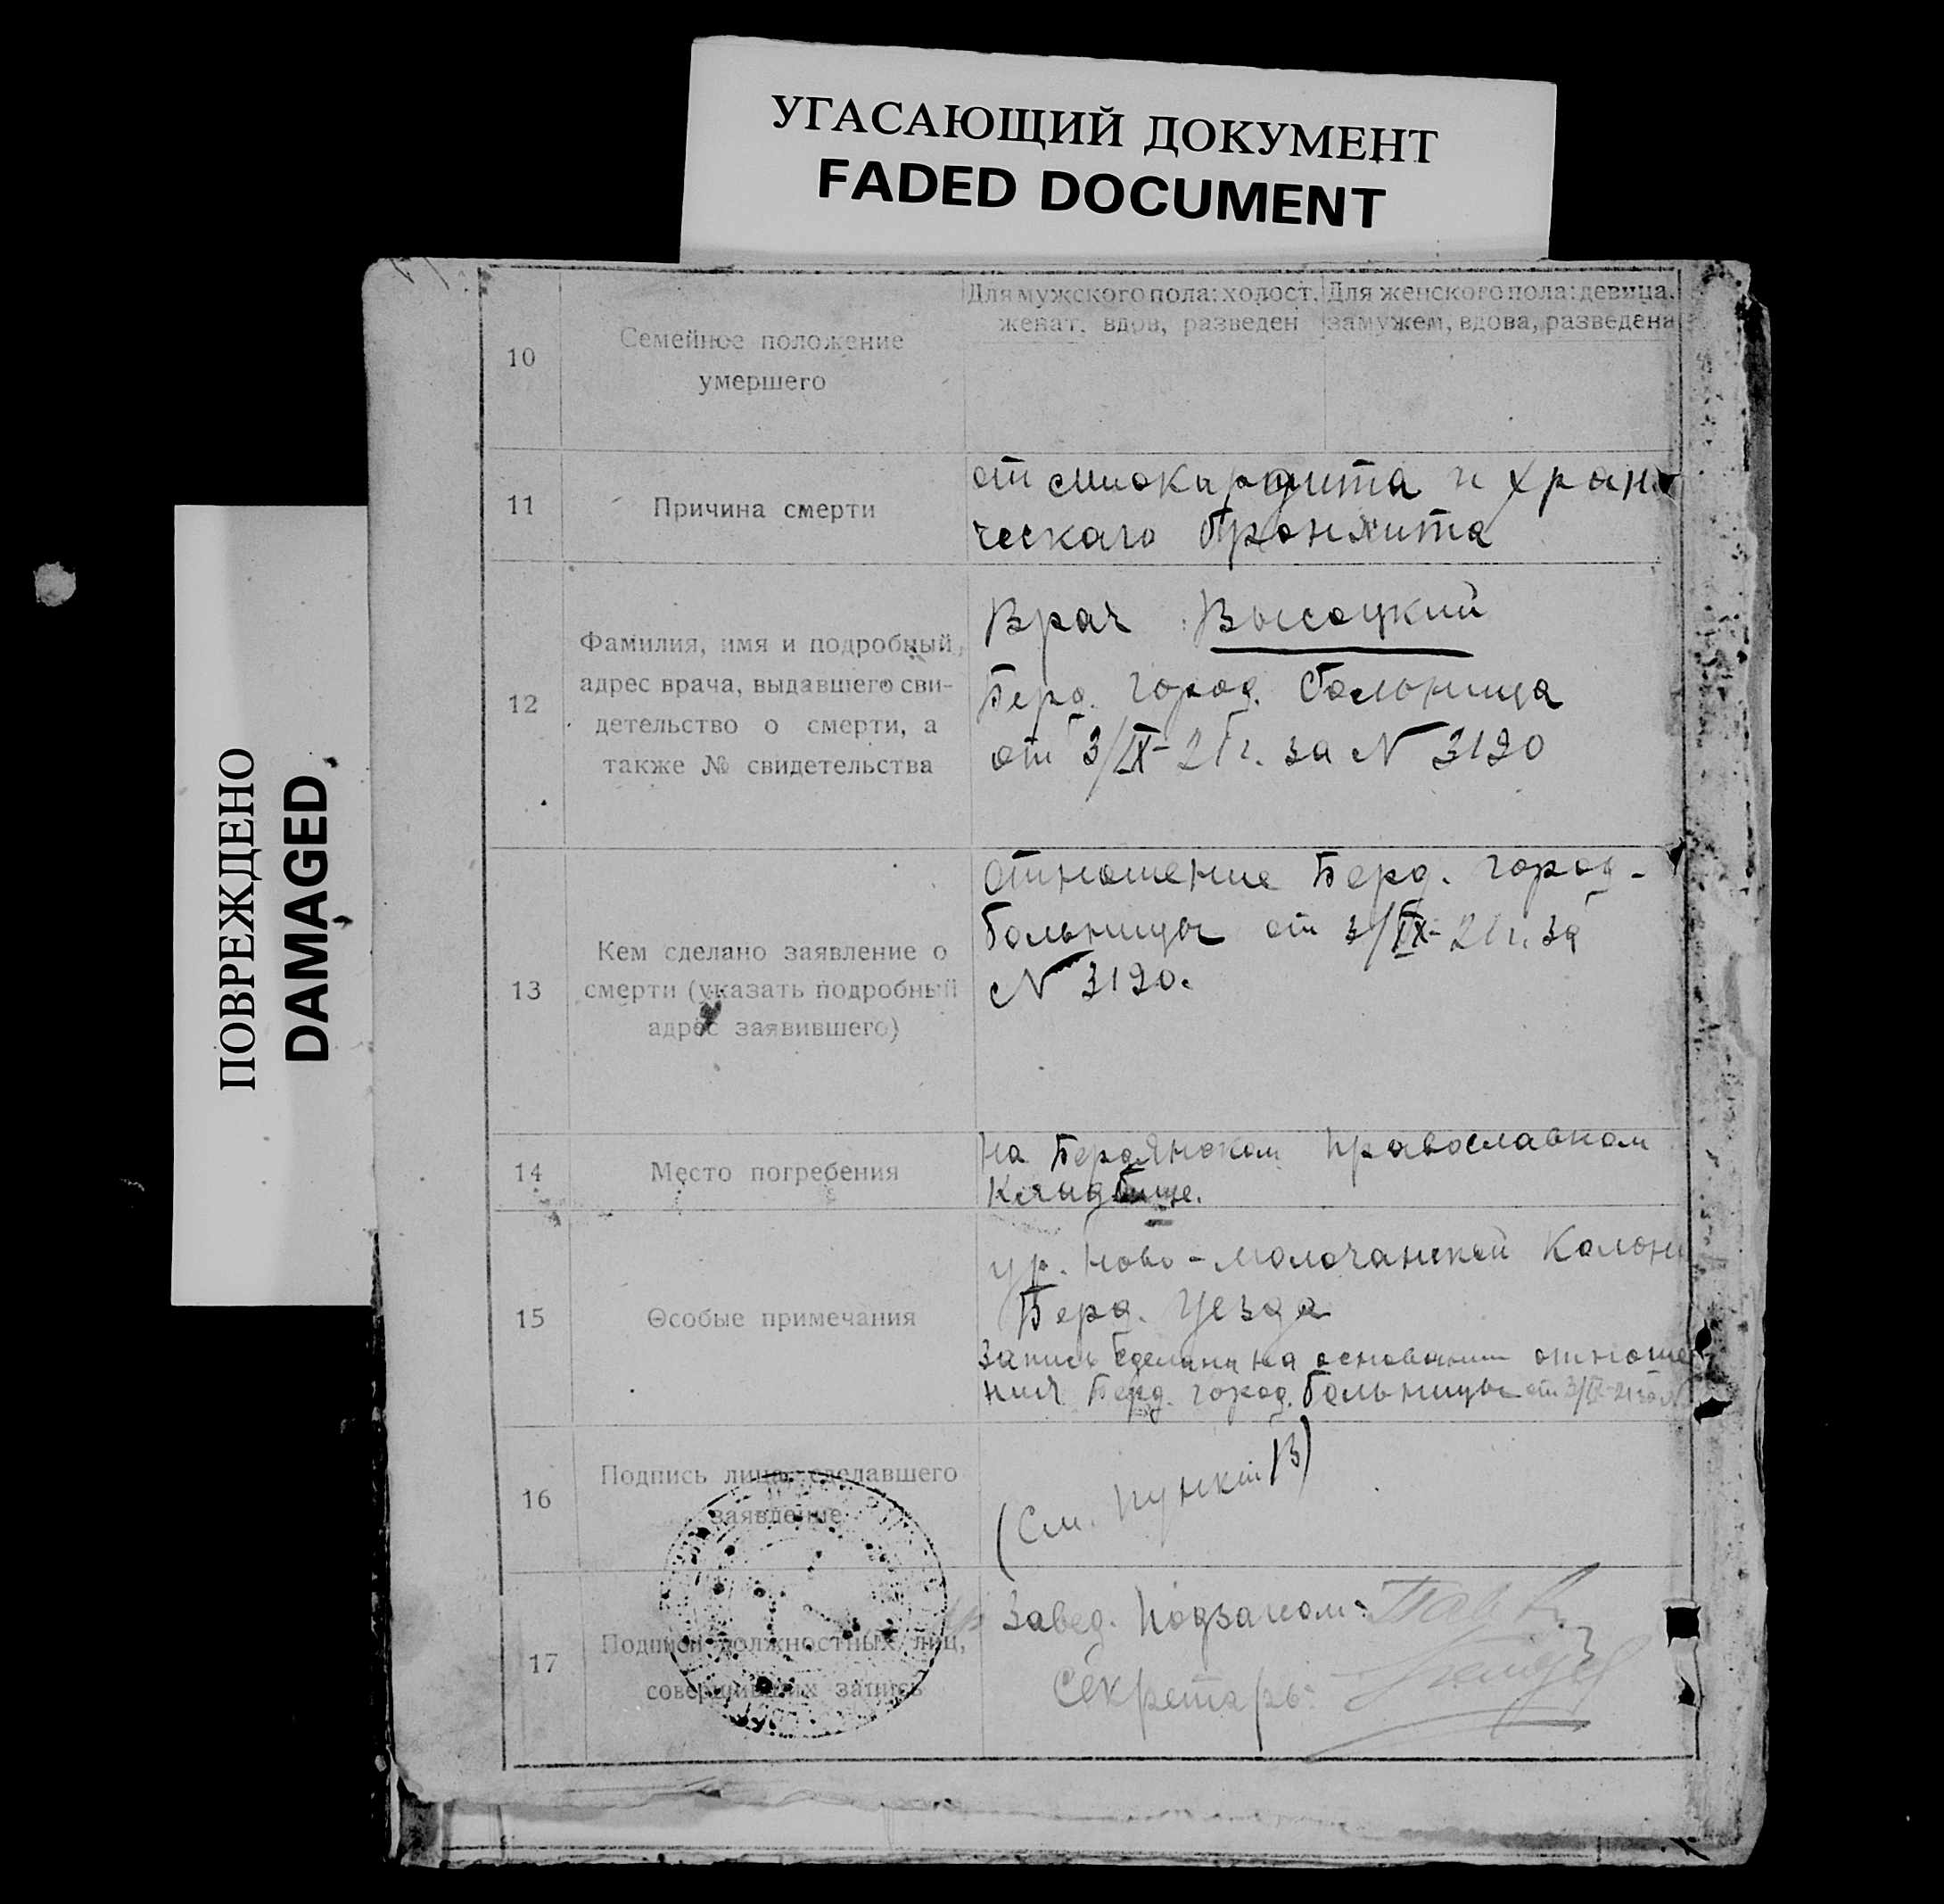 УГАСАЮЩИЙ ДОКУМЕНТ
FADED DOCUMENT
ПОВРЕЖДЕНО
DAMAGED
10
Семейное положение
умершего
Для мужского пола: холост,
женат, вдов, разведен
Для женского пола: девица,
замужем, вдова, разведена
11
Причина смерти
от миокардита и хрони
ческаго бронхита
12
Фамилия, имя и подробный
адрес врача, выдавшего сви-
детельство о смерти, а
также № свидетельства
Врач Высоцкий
Берд. город. больница
от 3/IX-21 г. за N 3120
13
Кем сделано заявление о
смерти (указать подробный
адрес заявившего)
Отношение Берд. город-
больницы от 3/IX-21 г. за
N 3120.
14
Место погребения
На Бердянском православном
кладбище.
15
Особые примечания
ур. Ново-Молочанской Колон
Берд. Уезда
Запись сделана на основании отноше
ния Берд. город. больницы от 3/IX-21
16
Подпись лица, сделавшего
заявление
(См. пункт 13)
17
Подписи должностных лиц,
совершивших запись
Завед. Подзагсом:
Секретарь: